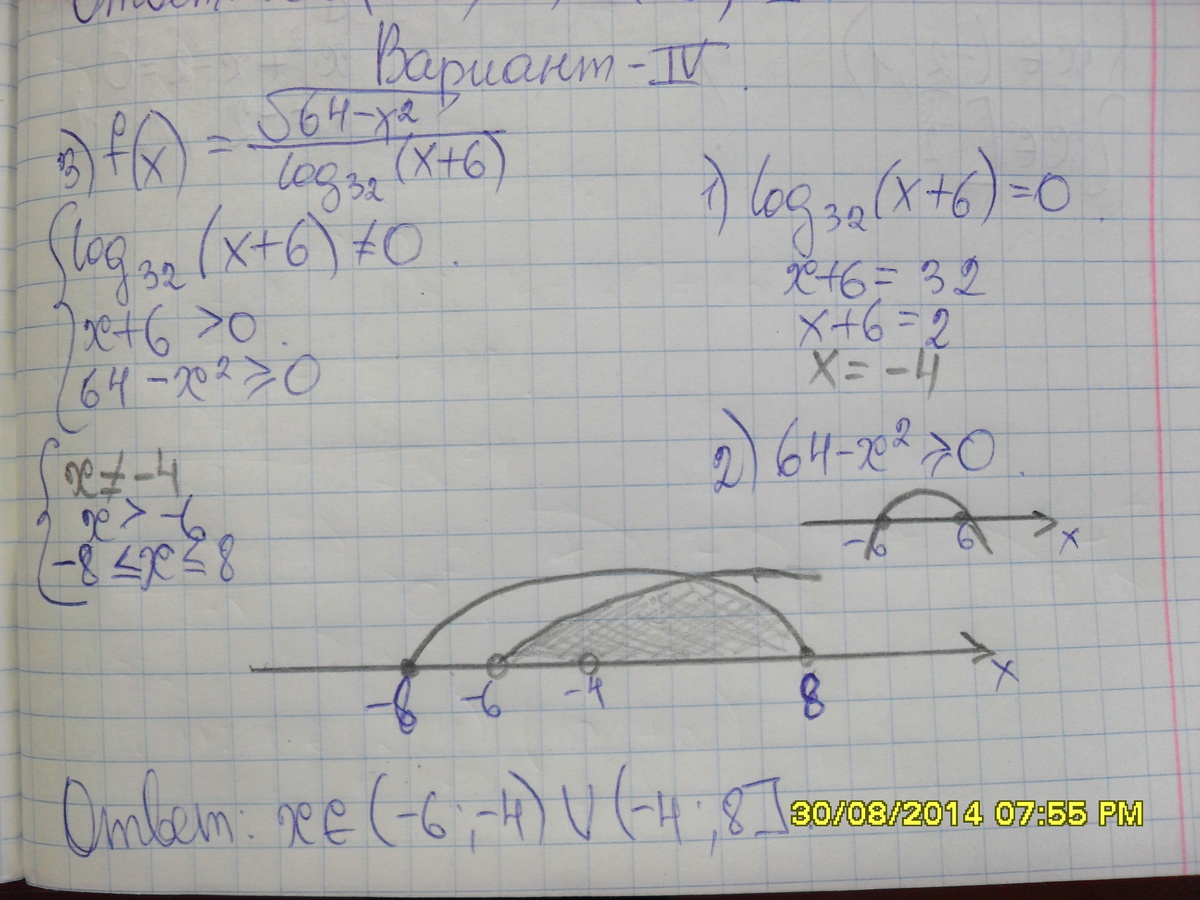 Вариант - IV
3) f(x) = √64-x² / log₃₂(x+6)
{ log₃₂(x+6) ≠ 0
x+6 > 0
64 - x² ⩾ 0
{ x ≠ -4
x > -6
-8 ≤ x ≤ 8
1) log₃₂(x+6) = 0
x+6 = 32
x+6 = 2
x = -4
2) 64 - x² ⩾ 0
-6 6 x
-8 -6 -4 8 x
Ответ: x ∈ (-6; -4) ∪ (-4; 8]
30/08/2014 07:55 PM